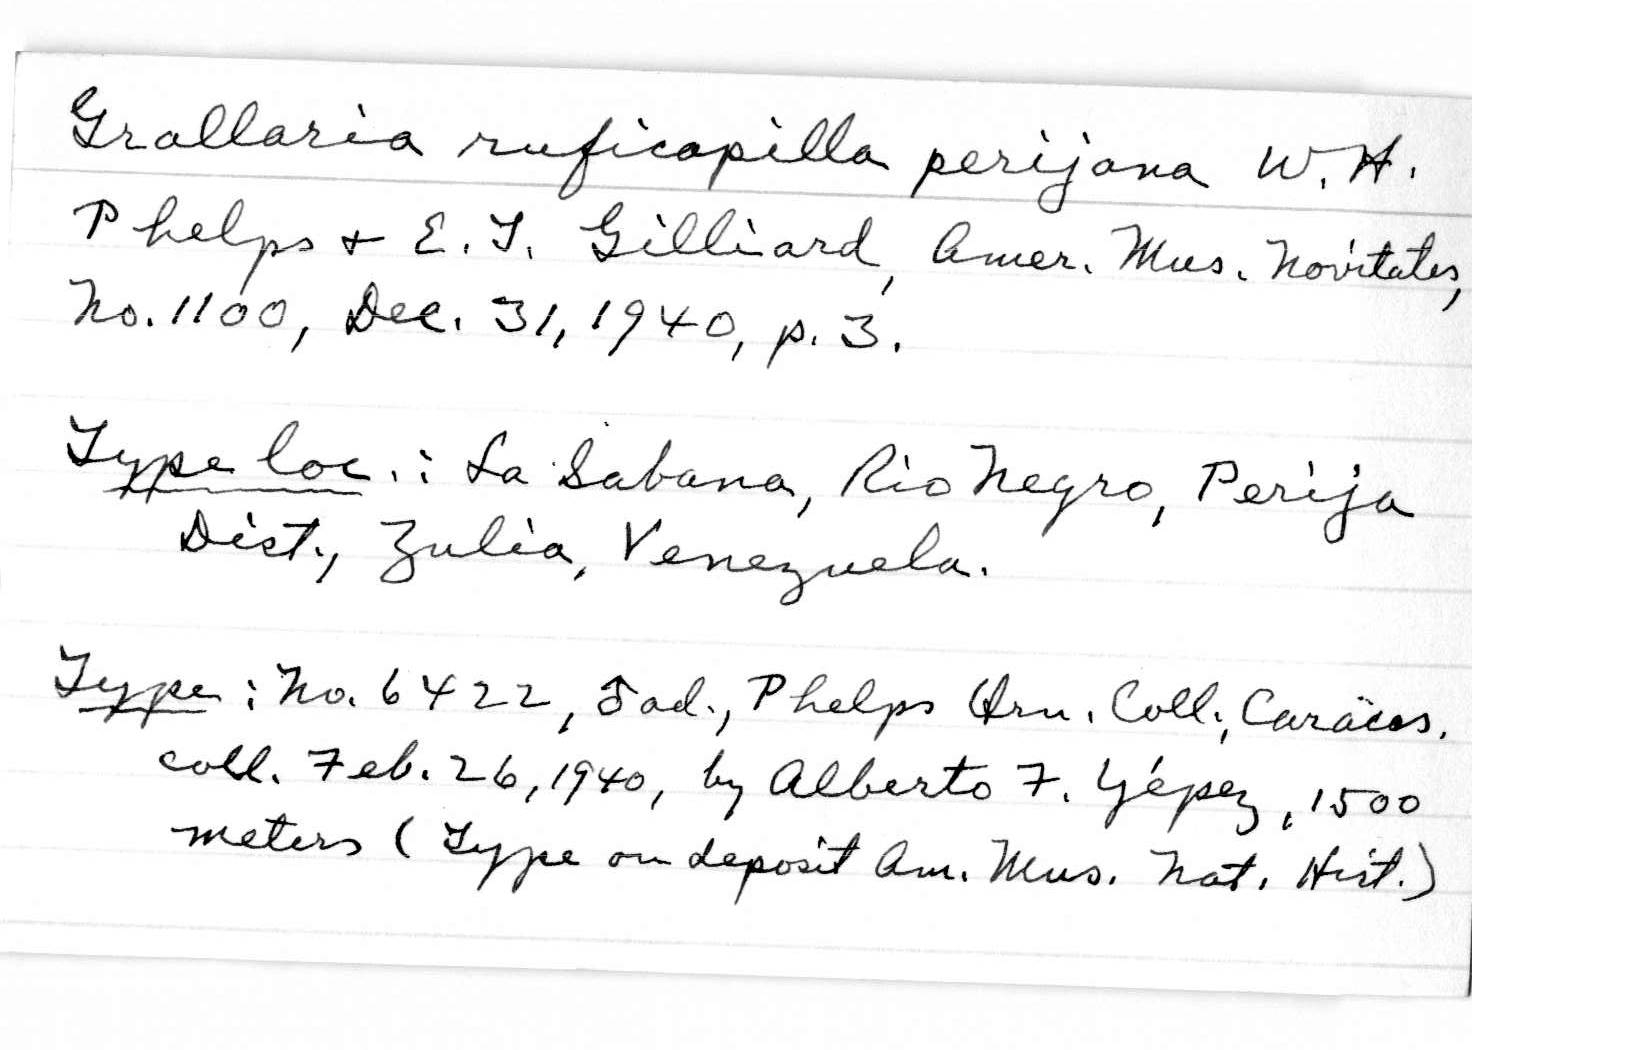 Grallaria ruficapilla perijana W. H.
Phelps + E. T. Gilliard, Amer. Mus. Novitates,
No. 1100, Dec. 31, 1940, p. 3.
Type loc.: La Sabana, Rio Negro, Perija
Dist., Zulia, Venezuela.
Type: No. 6422, ♂ ad., Phelps Orn. Coll., Caracas.
coll. Feb. 26, 1940, by Alberto F. Yépez, 1500
meters (Type on deposit Am. Mus. Nat. Hist.)